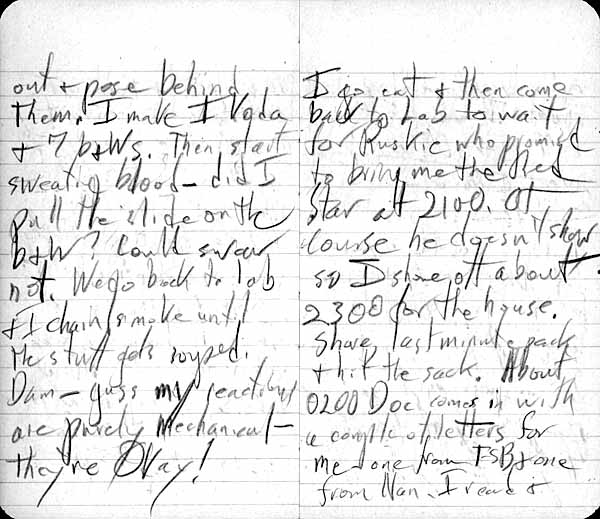 out + pose behind
them. I make 1 Koda
+ 7 b+Ws. Then start
sweating blood - did I
pull the slide on the
b+W? Could swear
not. We go back to lab
+ I chain smoke until
the stuff gets souped.
Damn - guess my reactions
are purely mechanical -
they're Okay!
I go eat + then come
back to Lab to wait
for Ruskie who promised
to bring me the Red
Star at 2100. Of
course he doesn't show
so I shove off about
2300 for the house.
Shave, last minute pack
+ hit the sack. About
0200 Doc comes in with
a couple of letters for
me - one from FSB + one
from Nan. I read +